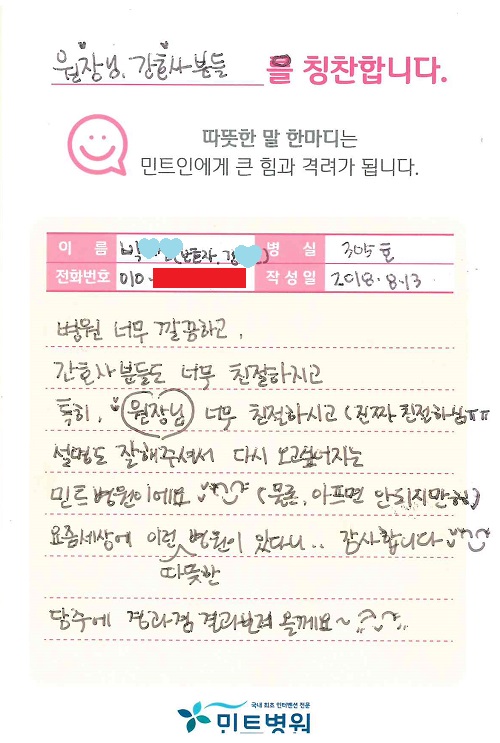 원장님, 간호사분들 을 칭찬합니다.
따뜻한 말 한마디는
민트인에게 큰 힘과 격려가 됩니다.
이 름 박 (보호자, 강 ) 병 실 305호
전화번호 010- 작성일 2018.8.13
병원 너무 깔끔하고,
간호사분들도 너무 친절하시고
특히, 원장님 너무 친절하시고 (진짜 친절하심ㅠㅠ
설명도 잘해주셔서 다시 오고싶어지는
민트병원이에요 (물론, 아프면 안되지만ㅎㅎ)
요즘세상에 이런 따뜻한 병원이 있다니.. 감사합니다
담주에 결과보러 올께요~
국내 최초 인터벤션 전문
민트병원